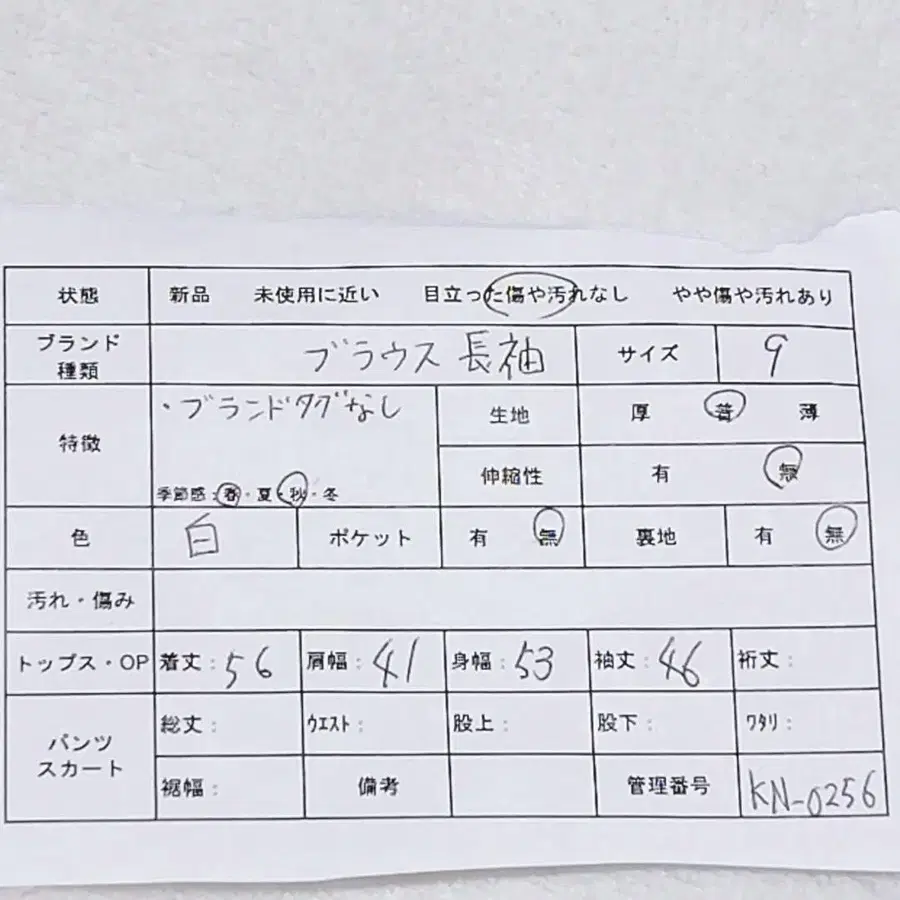 状態 新品 未使用に近い 目立った傷や汚れなし やや傷や汚れあり
ブランド
種類
ブラウス 長袖 サイズ 9
特徴
・ブランドタグなし
季節感:春・夏・秋・冬
生地 厚 普 薄
伸縮性 有 無
色 白 ポケット 有 無 裏地 有 無
汚れ・傷み
トップス・OP 着丈:56 肩幅:41 身幅:53 袖丈:46 裄丈:
パンツ
スカート
総丈: ウエスト: 股上: 股下: ワタリ:
裾幅: 備考 管理番号 KN-0256